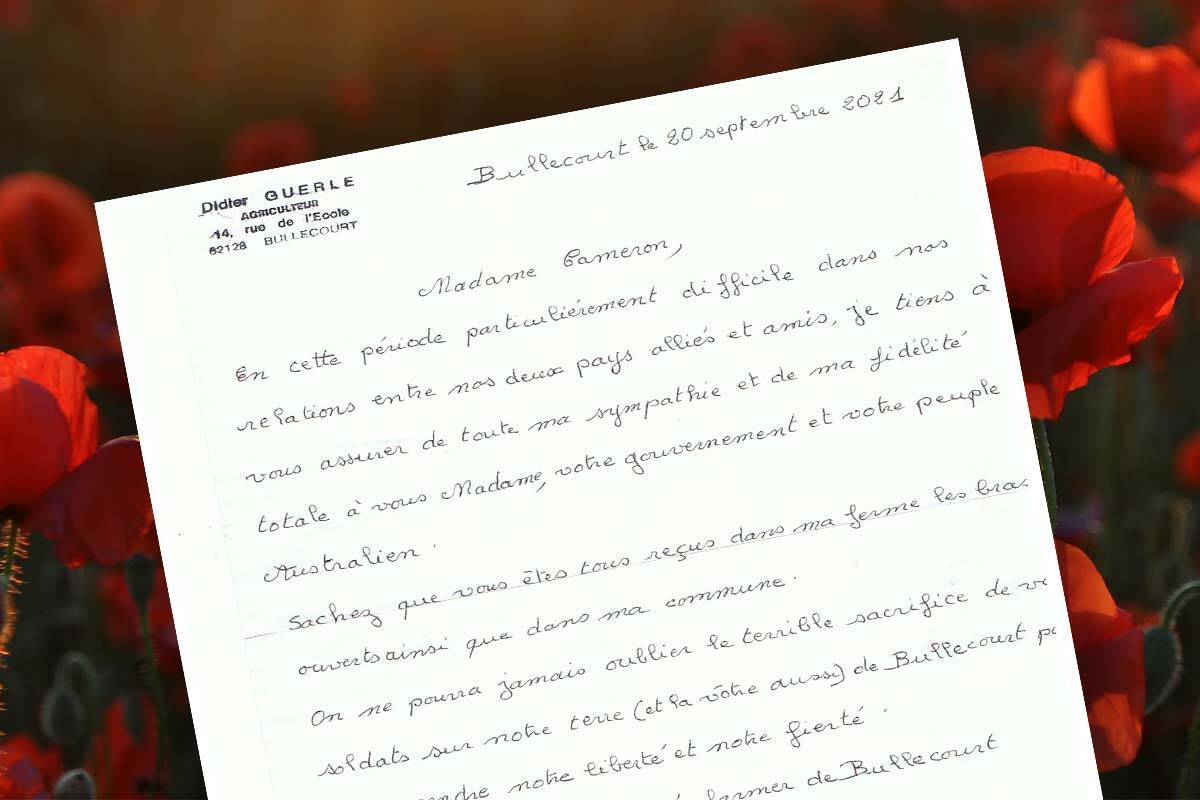 Didier GUERLE
AGRICULTEUR
14, rue de l'Ecole
62128 BULLECOURT
Bullecourt le 20 septembre 2021
Madame Cameron,
En cette période particuliérement difficile dans nos
relations entre nos deux pays alliés et amis, je tiens à
vous assurer de toute ma sympathie et de ma fidélité
totale à vous Madame, votre gouvernement et votre peuple
Australien.
Sachez que vous êtes tous reçus dans ma ferme les bras
ouverts ainsi que dans ma commune.
On ne pourra jamais oublier le terrible sacrifice de
soldats sur notre terre (et la vôtre aussi) de Bullecourt
notre liberté et notre fierté.
de Bullecourt